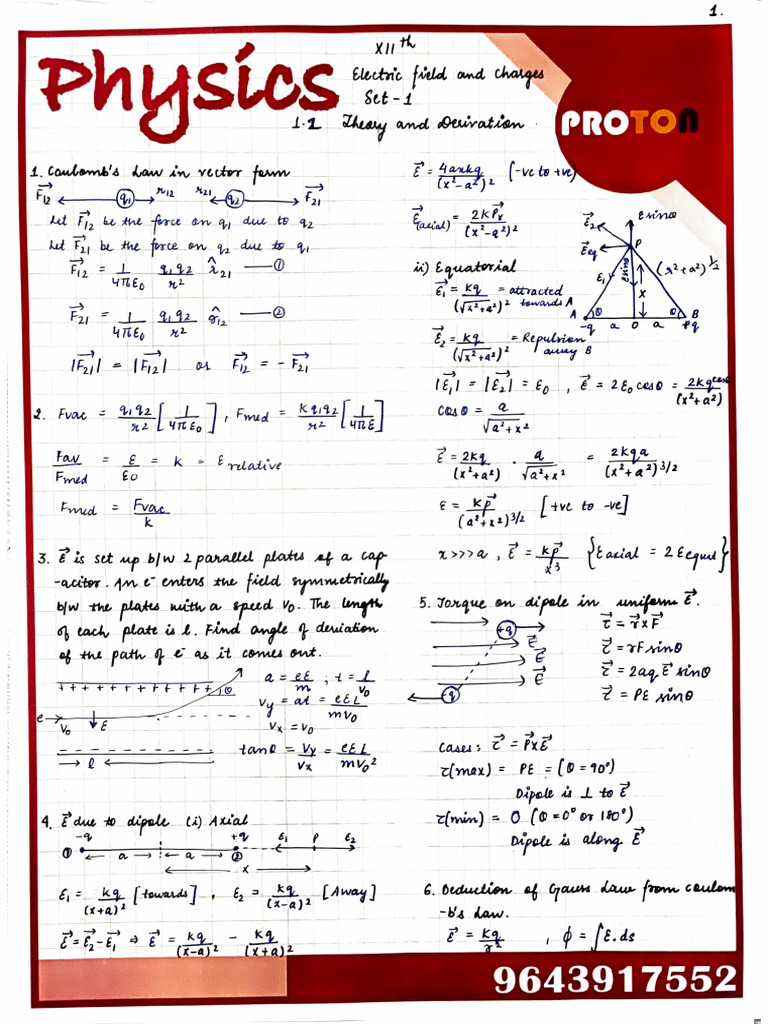 1.
Physics
XIIth
Electric field and charges
Set - 1
1.1 Theory and Derivation
PROTON
1. Coulomb's Law in vector form
F⃗12 q1 r12 r21 q2 F⃗21
Let F⃗12 be the force on q1 due to q2
Let F⃗21 be the force on q2 due to q1
F⃗12 = 1/4πε0 q1q2/r² r̂21 — ①
F⃗21 = 1/4πε0 q1q2/r² r̂12 — ②
|F⃗21| = |F⃗12| or F⃗12 = - F⃗21
2. Fvac = q1q2/r² [1/4πε0], Fmed = Kq1q2/r² [1/4πε]
Fav/Fmed = ε/ε0 = k = ε relative
Fmed = Fvac/k
3. E⃗ is set up b/w 2 parallel plates of a cap-
-acitor. An e⁻ enters the field symmetrically
b/w the plates with a speed v0. The length
of each plate is l. Find angle of deviation
of the path of e⁻ as it comes out.
+ + + + + + + + + + + + θ
e v0 E
l
a = eE/m ; t = l/v0
vy = at = eEL/mv0
vx = v0
tanθ = vy/vx = eEL/mv0²
4. E⃗ due to dipole (i) Axial
-q +q E1 P E2
① a a ②
x
E1 = kq/(x+a)² [towards], E2 = kq/(x-a)² [Away]
E⃗ = E⃗2 - E⃗1 ⇒ E⃗ = kq/(x-a)² - kq/(x+a)²
E⃗ = 4axkq/(x²-a²)² [-ve to +ve)
E⃗(axial) = 2kP⃗x/(x²-a²)²
ii) Equatorial
E⃗1 = kq/(√x²+a²)² = attracted towards A
E⃗2 = kq/(√x²+a²)² = Repulsion away B
E⃗2 E sinθ
P
E⃗eq
E1 E sinθ (x²+a²)^1/2
x
A θ θ B
-q a O a +q
|E⃗1| = |E⃗2| = E0 , E⃗ = 2E0 cosθ = 2kq cosθ/(x²+a²)
cosθ = a/√a²+x²
E⃗ = 2kq/(x²+a²) . a/√a²+x² = 2kqa/(x²+a²)^3/2
E = kp⃗/(a²+x²)^3/2 [+ve to -ve]
x>>>a , E⃗ = kp⃗/x³ {E axial = 2 E equit}
5. Torque on dipole in uniform E⃗.
+q
E⃗
E⃗
E⃗
-q
τ⃗ = r⃗xF⃗
τ⃗ = rF sinθ
τ⃗ = 2aq E⃗ sinθ
τ⃗ = PE sinθ
Cases: τ⃗ = P⃗xE⃗
τ(max) = PE = (θ = 90°)
Dipole is ⊥ to E⃗
τ(min) = 0 (θ = 0° or 180°)
Dipole is along E⃗
6. Deduction of Gauss Law from coulom
-b's Law.
E⃗ = kq/r² , ϕ = ∫E.ds
9643917552